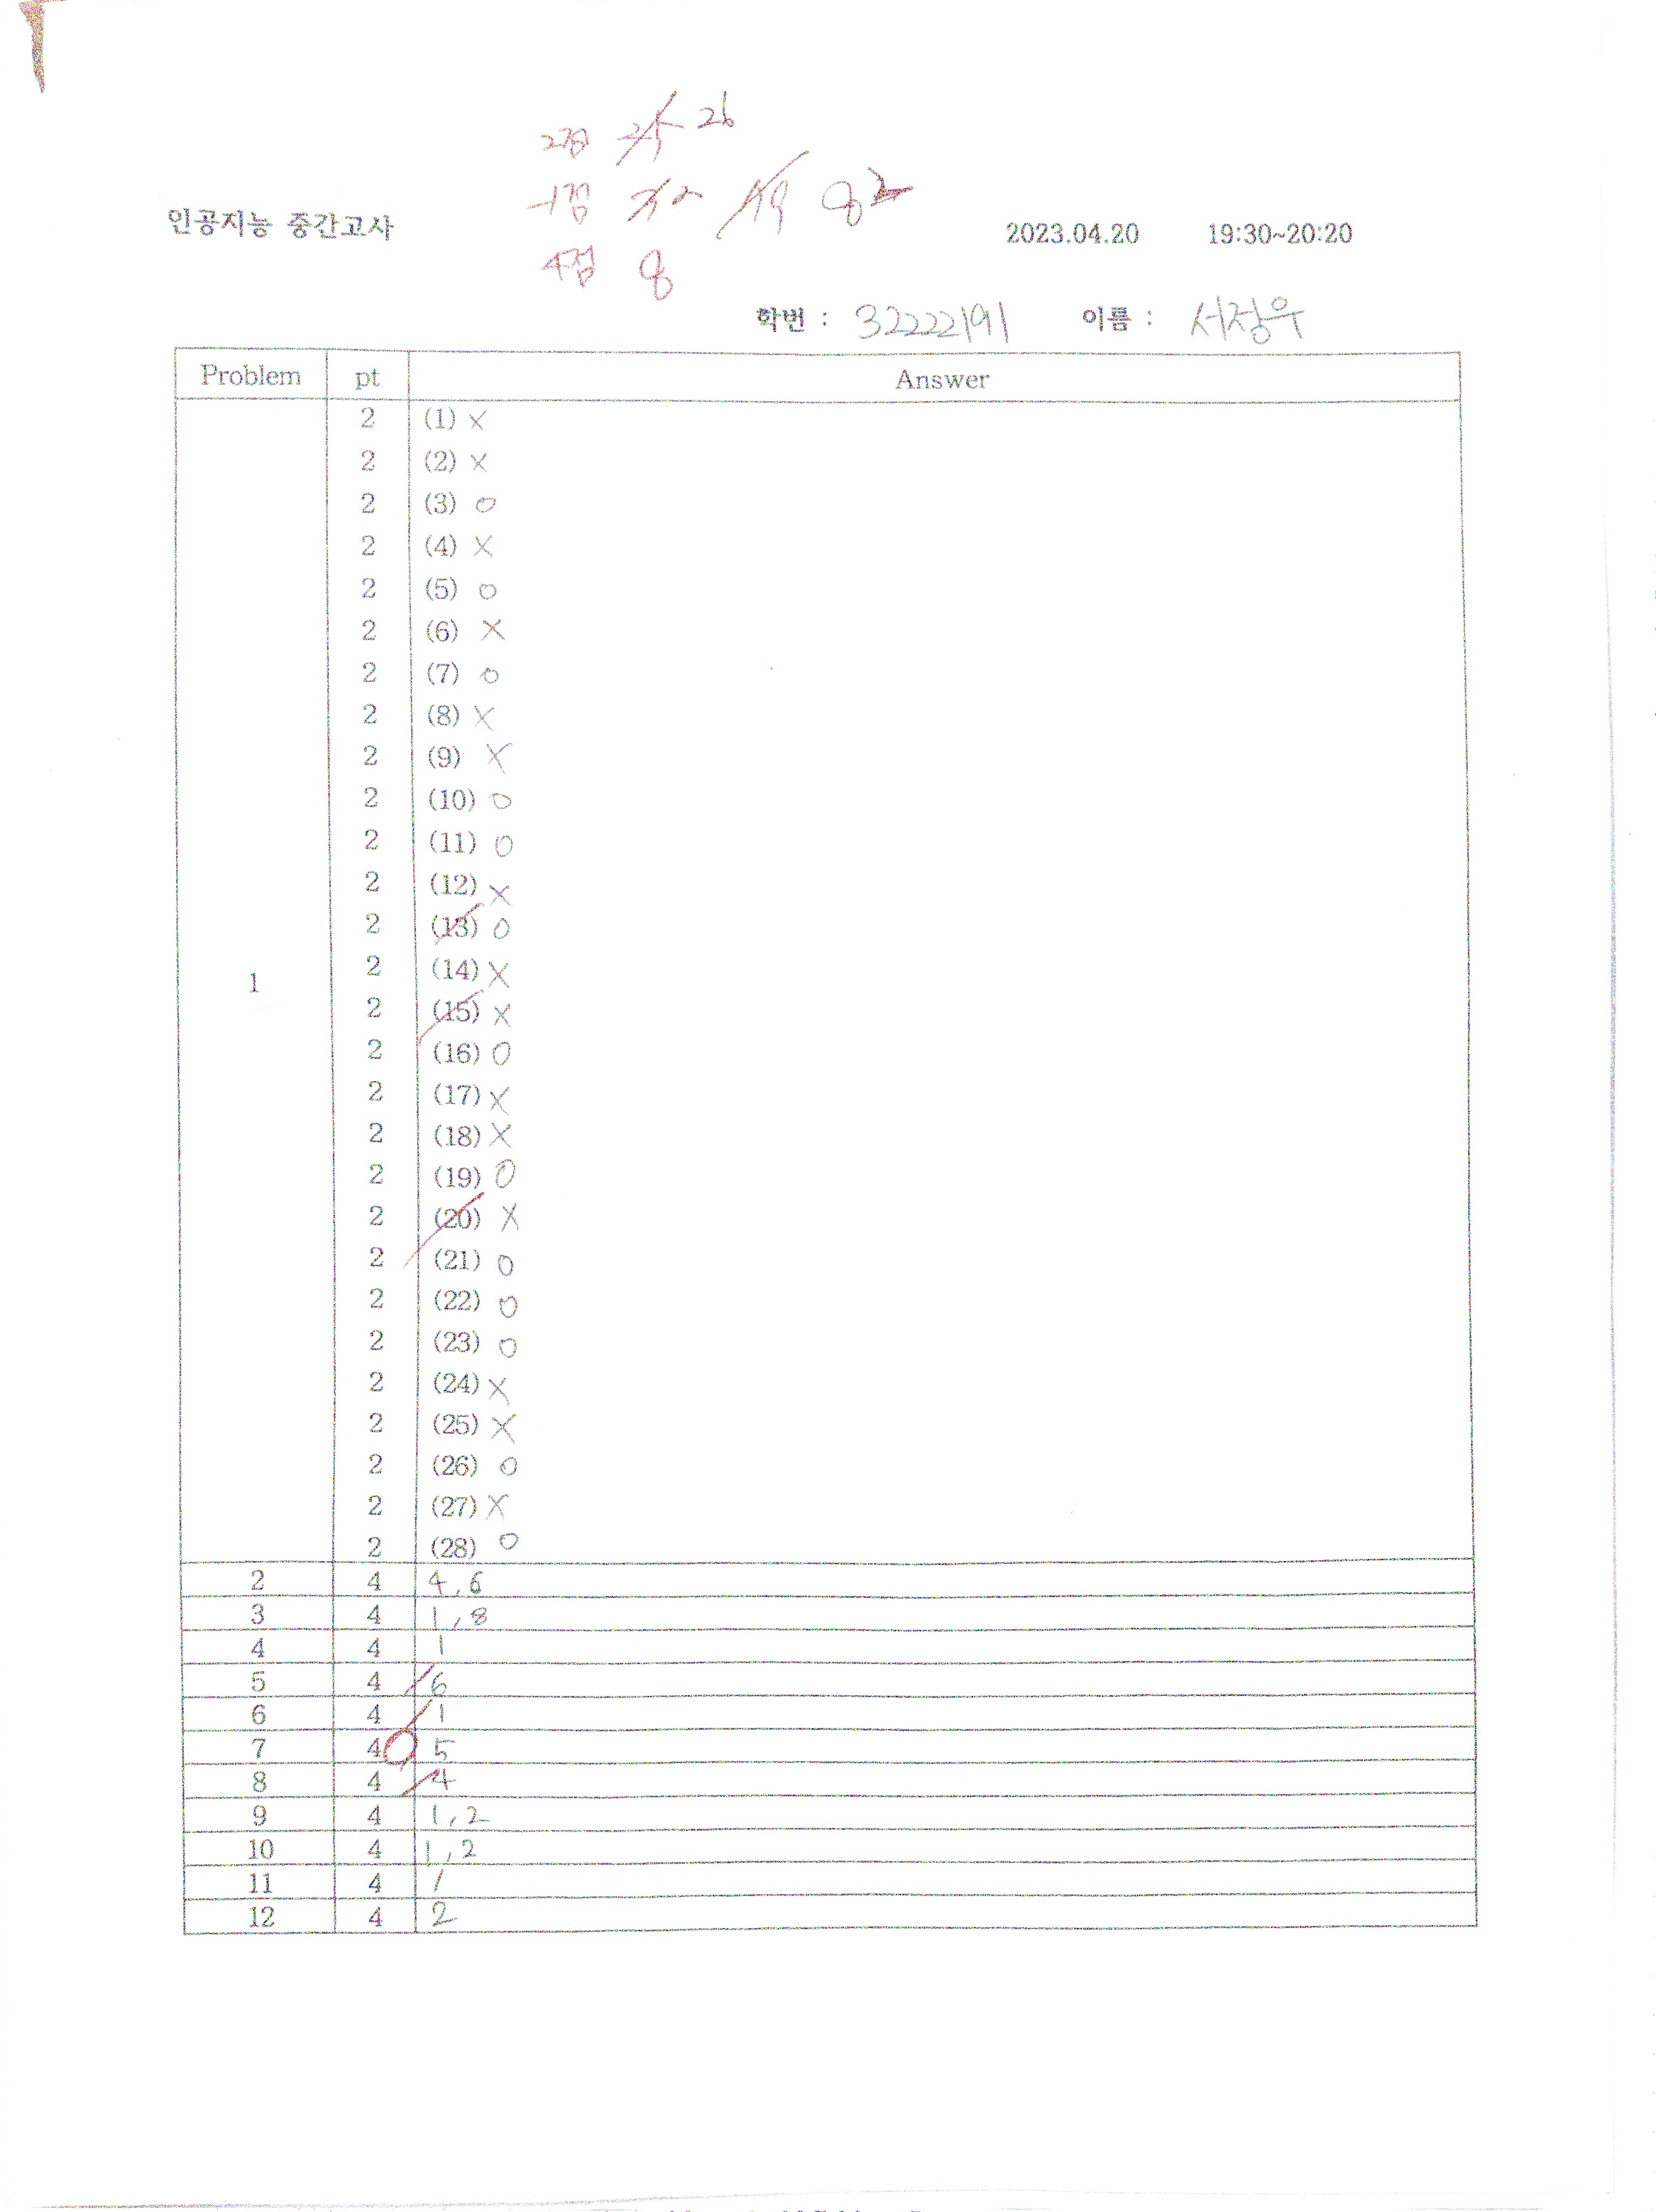 2점 26
-1점 82
4점 8
인공지능 중간고사
2023.04.20 19:30~20:20
학번 : 32222191 이름 : 서장우
Problem pt Answer
2 (1) X
2 (2) X
2 (3) O
2 (4) X
2 (5) O
2 (6) X
2 (7) O
2 (8) X
2 (9) X
2 (10) O
2 (11) O
2 (12) X
2 (13) O
1 2 (14) X
2 (15) X
2 (16) O
2 (17) X
2 (18) X
2 (19) O
2 (20) X
2 (21) O
2 (22) O
2 (23) O
2 (24) X
2 (25) X
2 (26) O
2 (27) X
2 (28) O
2 4 4, 6
3 4 1, 8
4 4 1
5 4 6
6 4 1
7 4 5
8 4 4
9 4 1, 2
10 4 1, 2
11 4 1
12 4 2